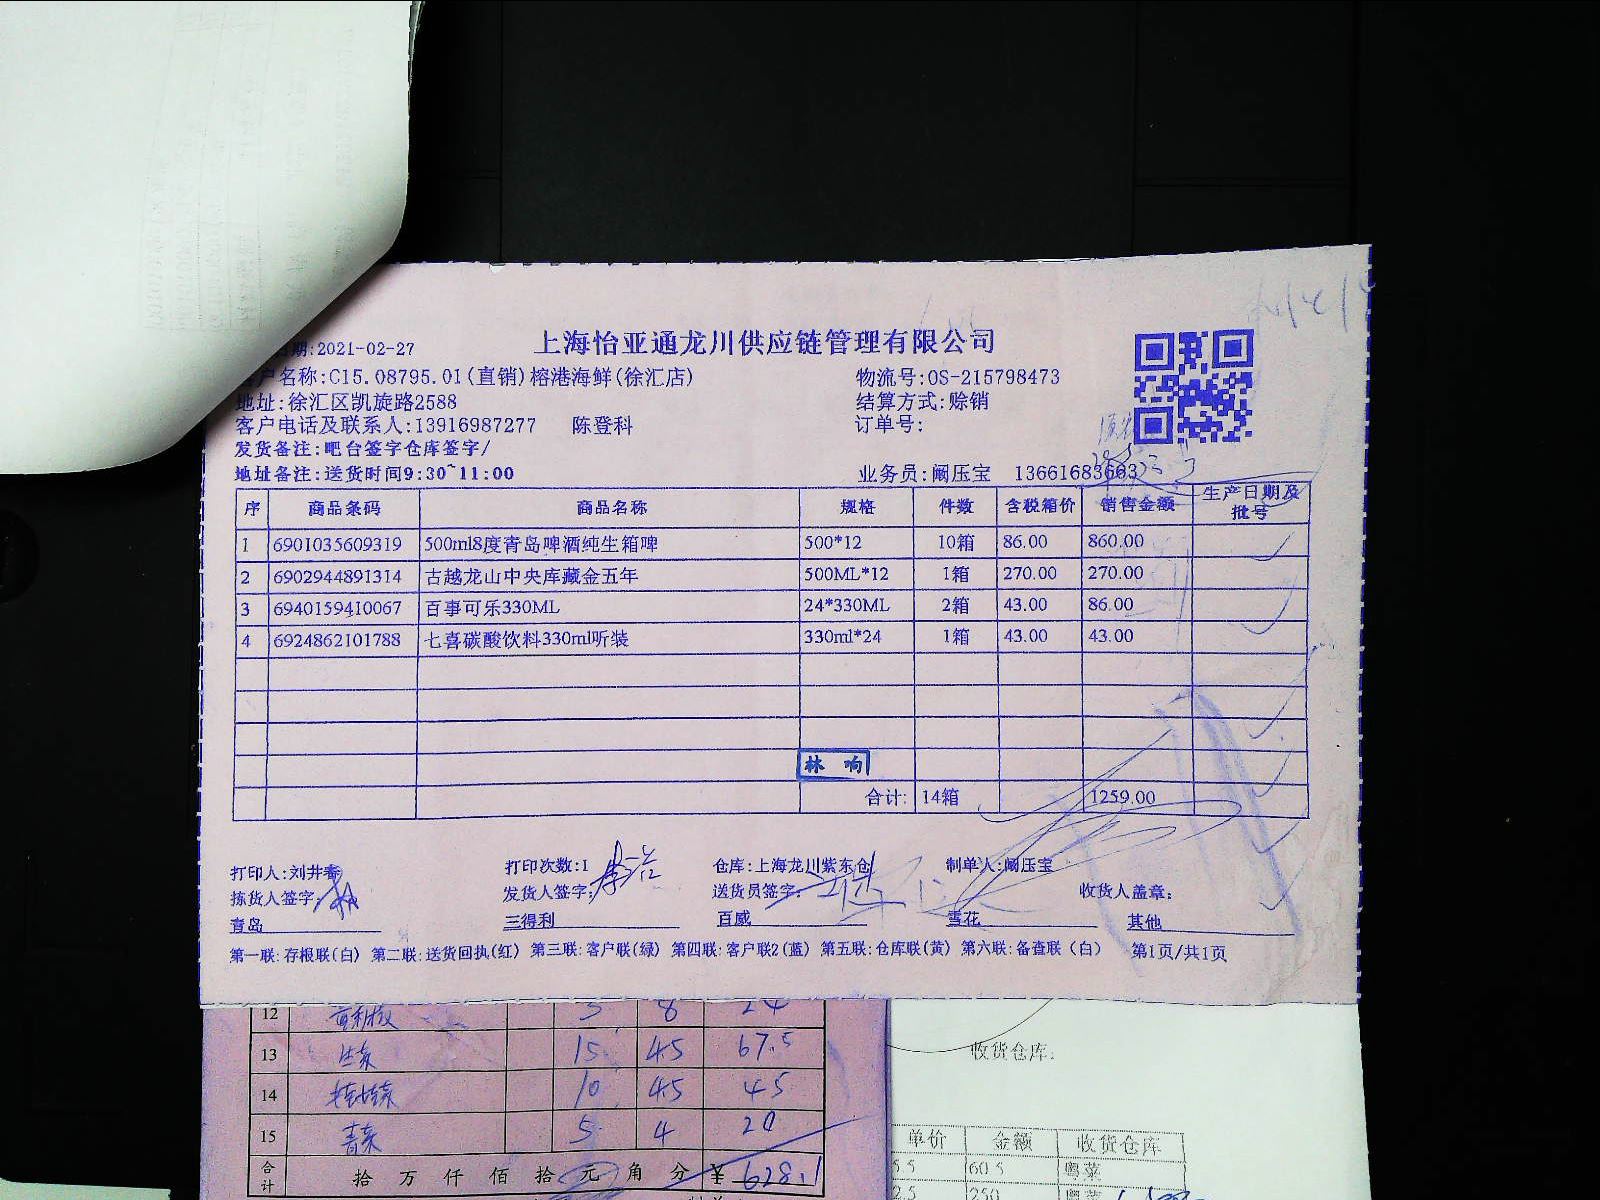 期:2021-02-27
上海怡亚通龙川供应链管理有限公司
户名称:C15.08795.01(直销)榕港海鲜(徐汇店)
物流号:OS-215798473
地址:徐汇区凯旋路2588
结算方式:赊销
客户电话及联系人:13916987277 陈登科
订单号:
发货备注:吧台签字仓库签字/
地址备注:送货时间9:30~11:00
业务员:阚压宝 13661683603
序 商品条码 商品名称 规格 件数 含税箱价 销售金额 生产日期及批号
1 6901035609319 500ml8度青岛啤酒纯生箱啤 500*12 10箱 86.00 860.00
2 6902944891314 古越龙山中央库藏金五年 500ML*12 1箱 270.00 270.00
3 6940159410067 百事可乐330ML 24*330ML 2箱 43.00 86.00
4 6924862101788 七喜碳酸饮料330ml听装 330ml*24 1箱 43.00 43.00
林 响
合计: 14箱 1259.00
打印人:刘井春 打印次数:1 仓库:上海龙川紫东仓 制单人:阚压宝
拣货人签字: 发货人签字: 送货员签字: 收货人盖章:
青岛 三得利 百威 雪花 其他
第一联:存根联(白) 第二联:送货回执(红) 第三联:客户联(绿) 第四联:客户联2(蓝) 第五联:仓库联(黄) 第六联:备查联(白) 第1页/共1页
12 5 8 24
13 15 4.5 67.5
14 10 4.5 45
15 5 4 20
合计 拾 万 仟 佰 拾 元 角 分 ¥ 628.1
收货仓库:
单价 金额 收货仓库
5.5 60.5 粤菜
2.5 250 粤菜